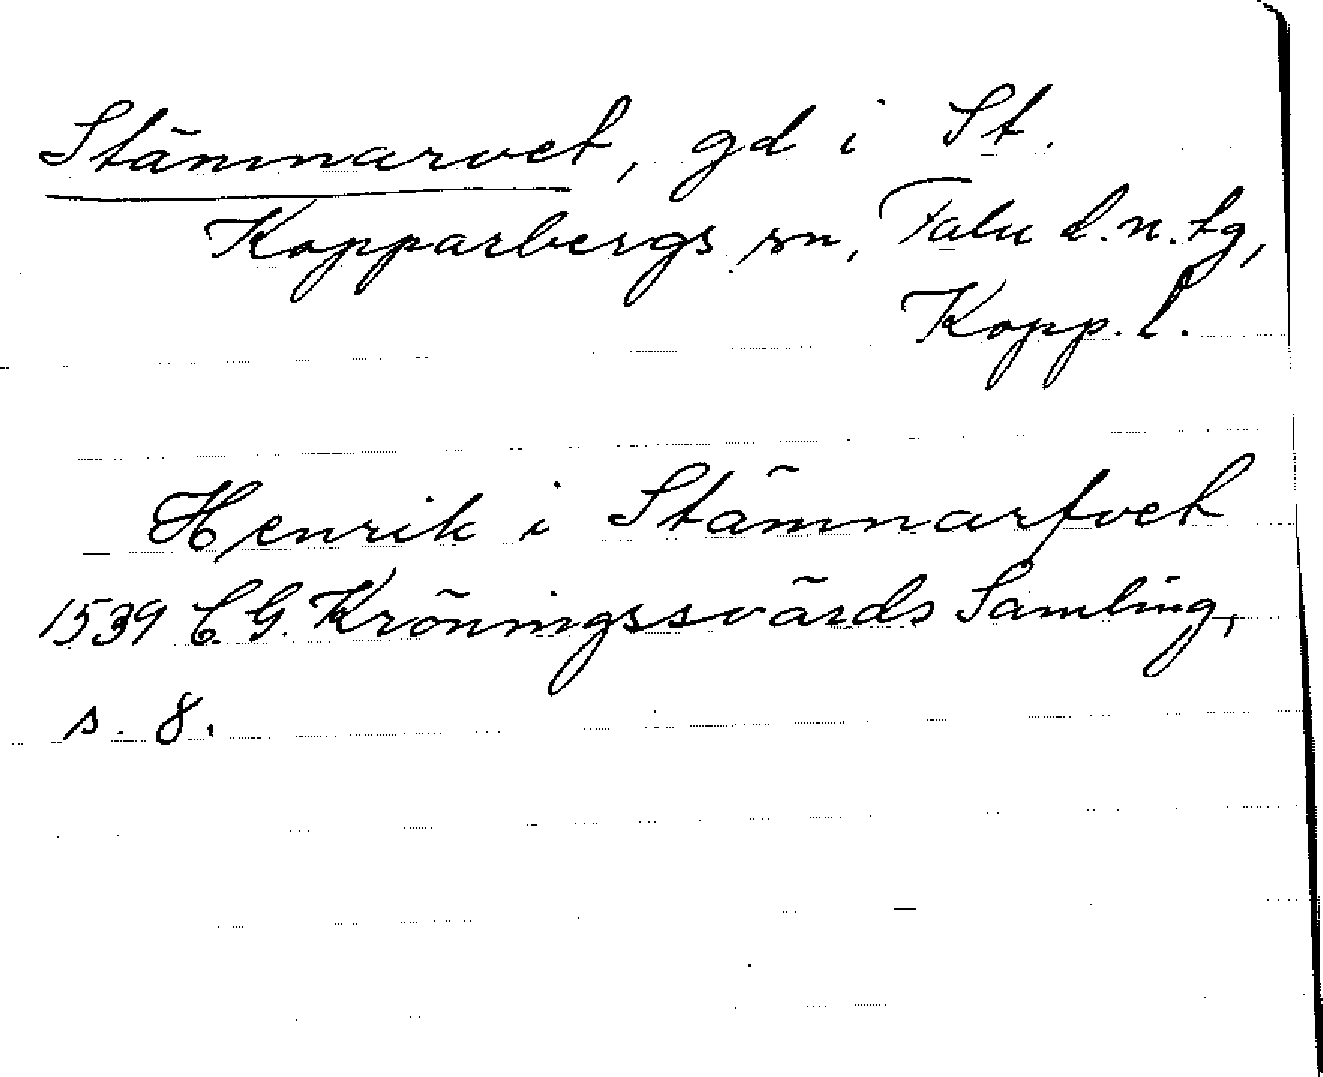 Stämnarvet, gd i St.
Kopparbergs sn, Falu d.n.tg,
Kopp. l.
Henrik i Stämnarfvet
1539 C. G. Kröningssvärds Samling,
s. 8.